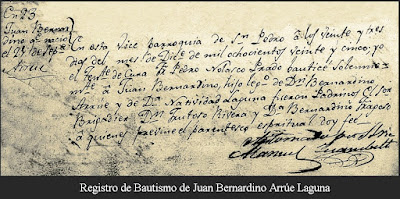 En 23
Juan Bernar
dino q.e nació
el 23 de Feb.o
Arrúe
En esta Vice Parroquia de S.n Pedro á los veinte y tres
dias del mes de Dic.re de mil ochocientos veinte y cinco, yo
el ten.te de Cura D. Pedro Nolasco Prado bautizé solemne
m.te á Juan Bernardino, hijo leg.o de D.n Bernardino
Arrúe y de D.a Natividad Laguna fueron Padrinos el Sor
Brigadier D.n Frutoso Rivera y D.a Bernardina
á quienes previne el parentesco espiritual doy fee
Manuel
Registro de Bautismo de Juan Bernardino Arrúe Laguna